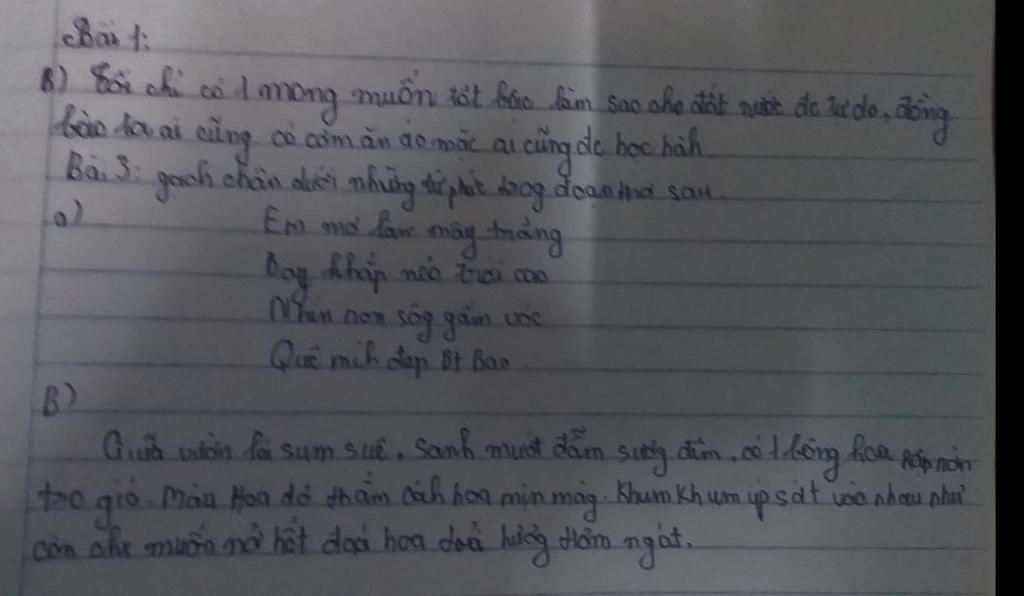 Bài 1:
B) Tôi chỉ có 1 mong muốn tột bậc làm sao cho đất nước đc tự do, đồng
bào ta ai cũng có cơm ăn áo mặc ai cũng đc học hàh
Bài 3: gạch chân dưới những từ phức trog đoạn thơ sau.
a) Em mơ làm mây trắng
Bay khắp nẻo trời cao
Nhìn non sôg gấm vóc
Quê mìh đẹp Bt Bao
B)
Giữa vườn lá sum suê, Sanh mướt đẫm sươg đêm, có 1 bông hoa Rập rờn
trc gió. Màu Hoa đỏ thắm Cáh hoa mịn màg. Khum Khum úp sát vào nhau như
còn chx muốn nở hết đoá hoa toả hươg thơm ngát.